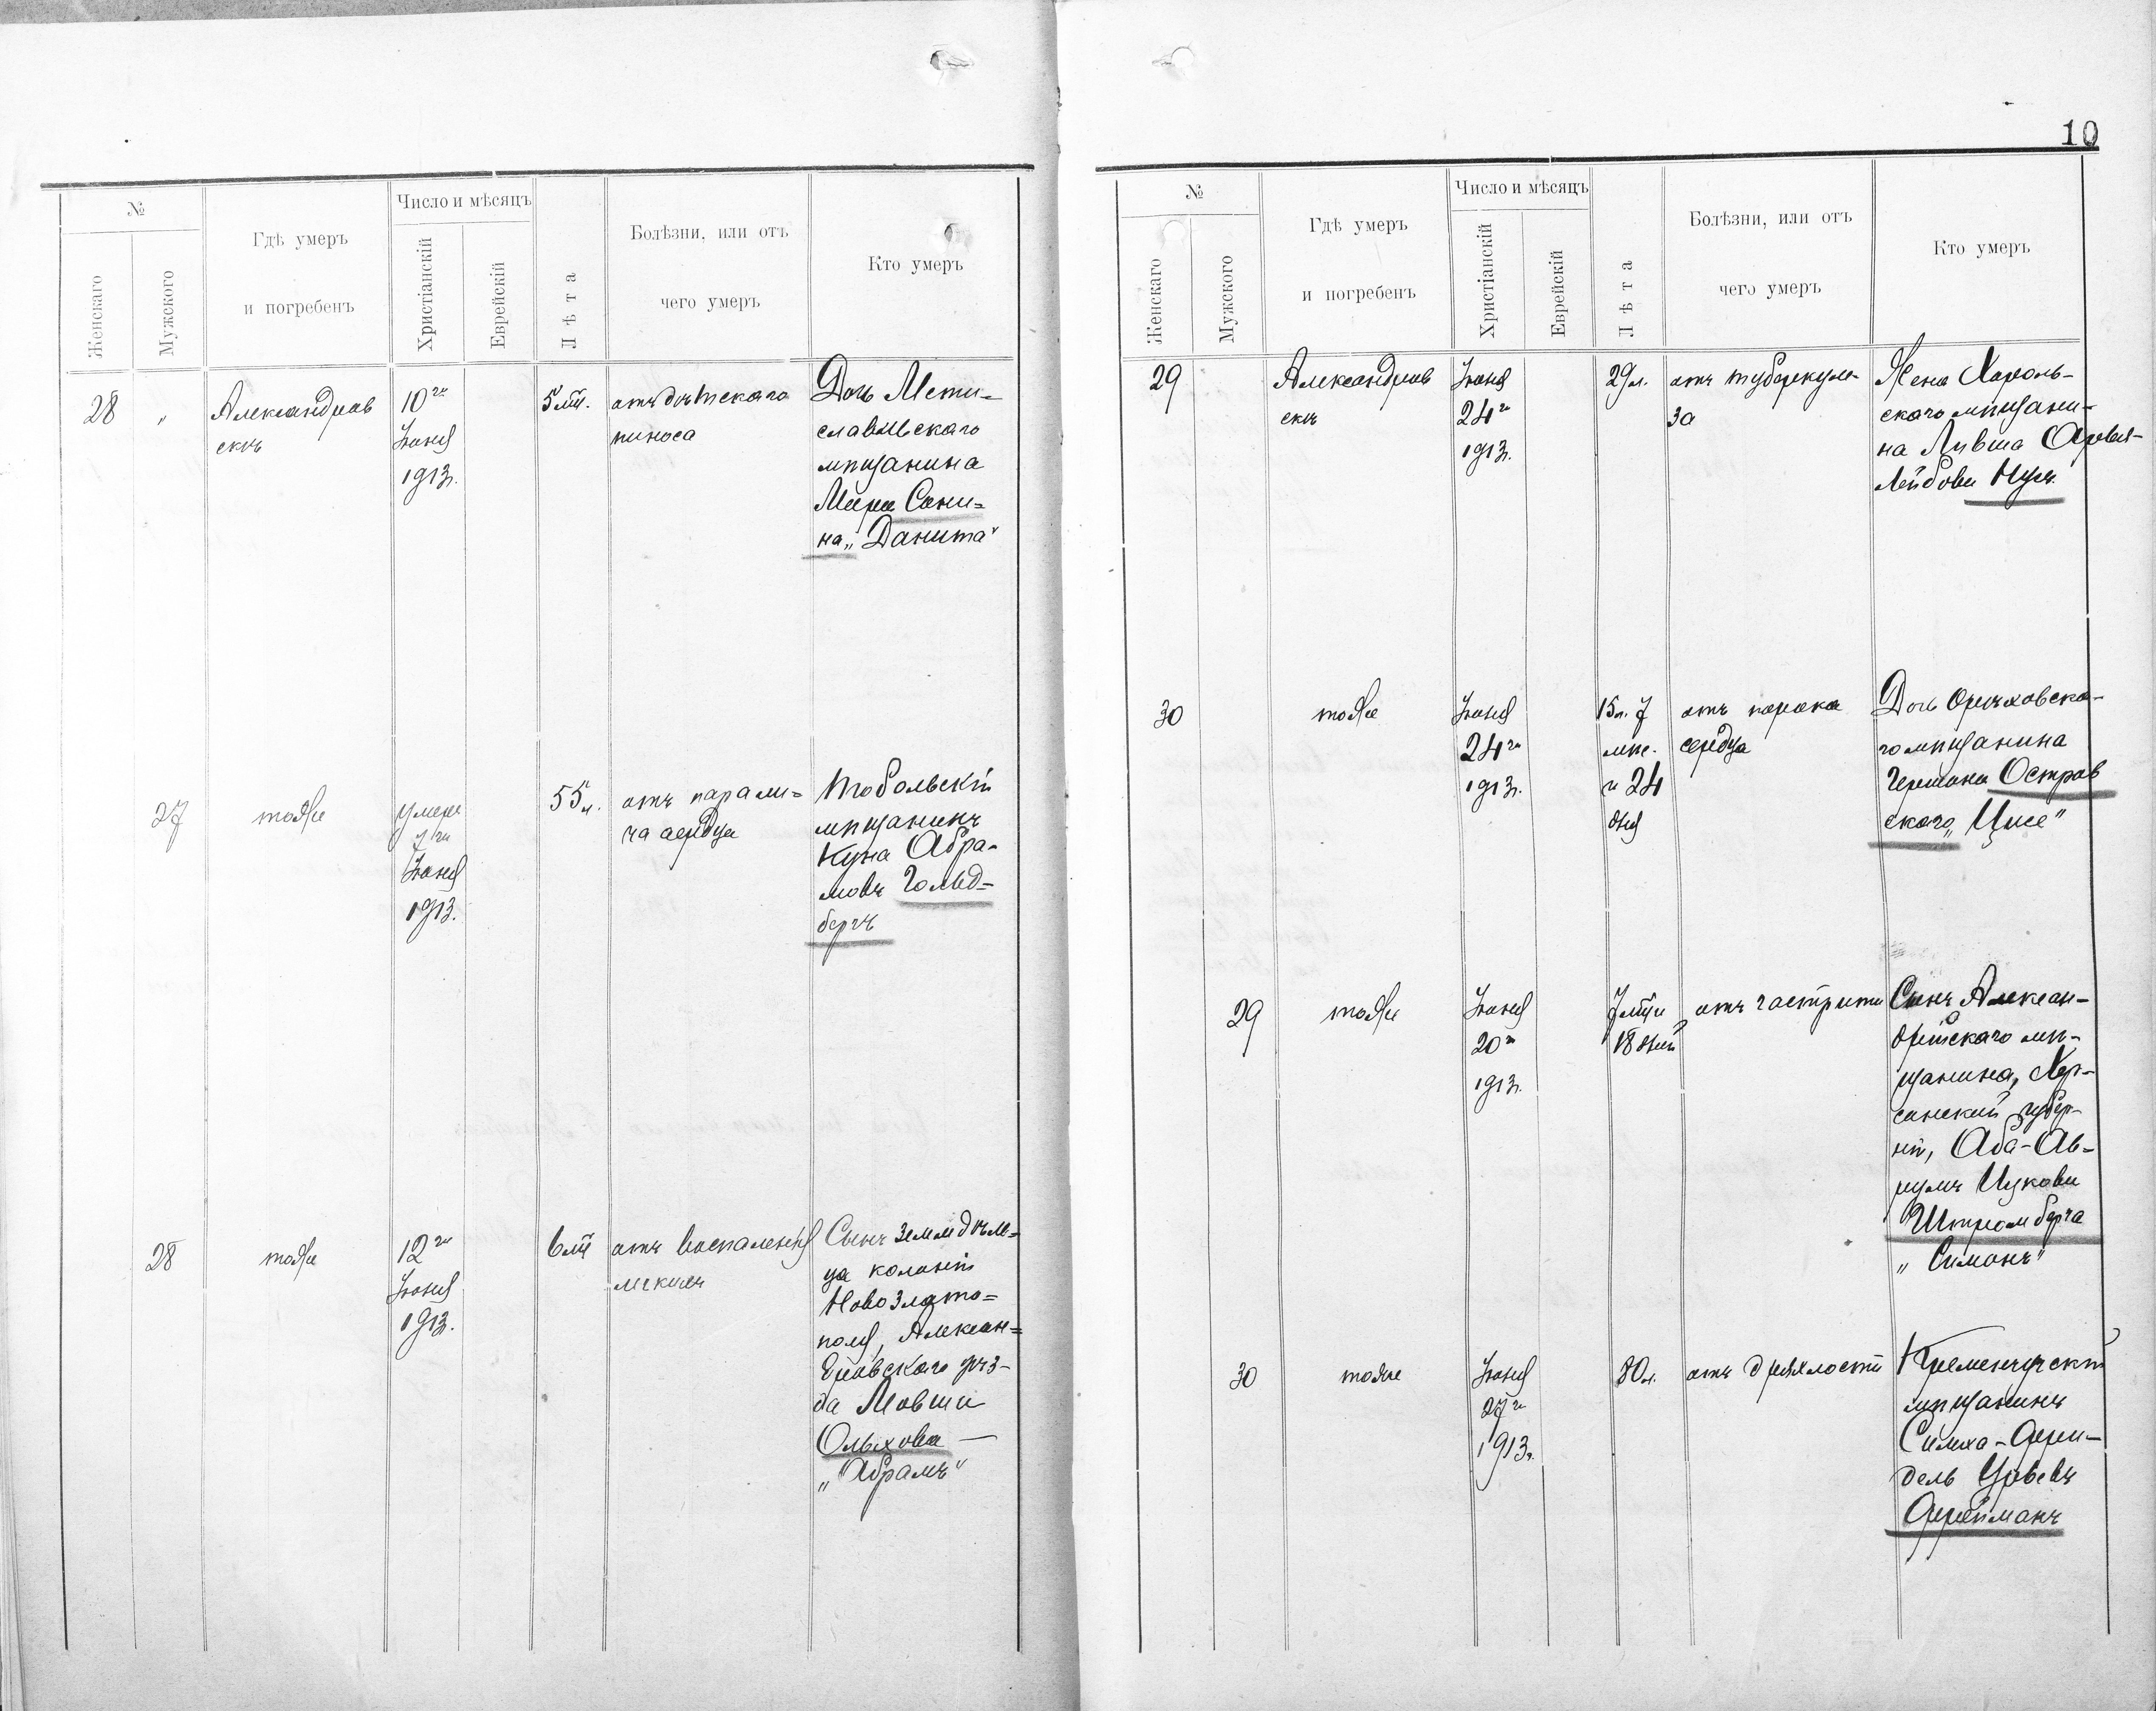 №
Женскаго
Мужского
Гдѣ умеръ
и погребенъ
Число и мѣсяцъ
Христіанскій
Еврейскій
Лѣта
Болѣзни, или отъ
чего умеръ
Кто умеръ
28 "
Александров
скъ
10го
Іюня
1913г.
5 мѣс.
отъ дѣтскаго
поноса
Дочь Мсти=
славльскаго
мѣщанина
Мера Сони=
на „Данита"
27
тоже
умеръ
7го
Іюня
1913.
55 л.
отъ парали=
ча сердца
Тобольскій
мѣщанинъ
Куна Абра-
мовъ Гольд=
бергъ
28
тоже
12го
Іюня
1913.
6 мѣс
отъ воспаленія
легкихъ
Сынъ земледѣль=
ца колоніи
Новозлато=
поля, Алексан=
дровскаго уѣз-
да Мовши
Ольхова —
„Абрамъ"
10
№
Женскаго
Мужского
Гдѣ умеръ
и погребенъ
Число и мѣсяцъ
Христіанскій
Еврейскій
Лѣта
Болѣзни, или отъ
чего умеръ
Кто умеръ
29
Александров
скъ
Іюня
24го
1913г.
29 л.
отъ туберкуле-
за
Жена Хороль-
скаго мѣщани-
на
Лейбова
30
тоже
Іюня
24го
1913г.
15 л. 7
мѣс.
и 24
дня
отъ порока
сердца
Дочь Орѣховска-
го мѣщанина
Германа Остров
скаго
29
тоже
Іюня
20го
1913г.
7 мѣс и
18 дней
отъ гастрита
Сынъ Алексан-
дрійскаго мѣ-
щанина, Хер-
сонской губер-
ніи, Аба-Ав-
румъ Ицкова
Штромберга
„Симонъ"
30
тоже
Іюня
27го
1913г.
80 л.
отъ дряхлости
Кременчугскій
мѣщанинъ
Симха-Фрей-
дель
Фрейманъ